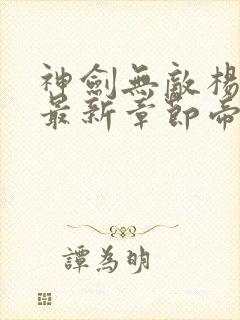 神劍無敵楊
最新章節帝
譚為明